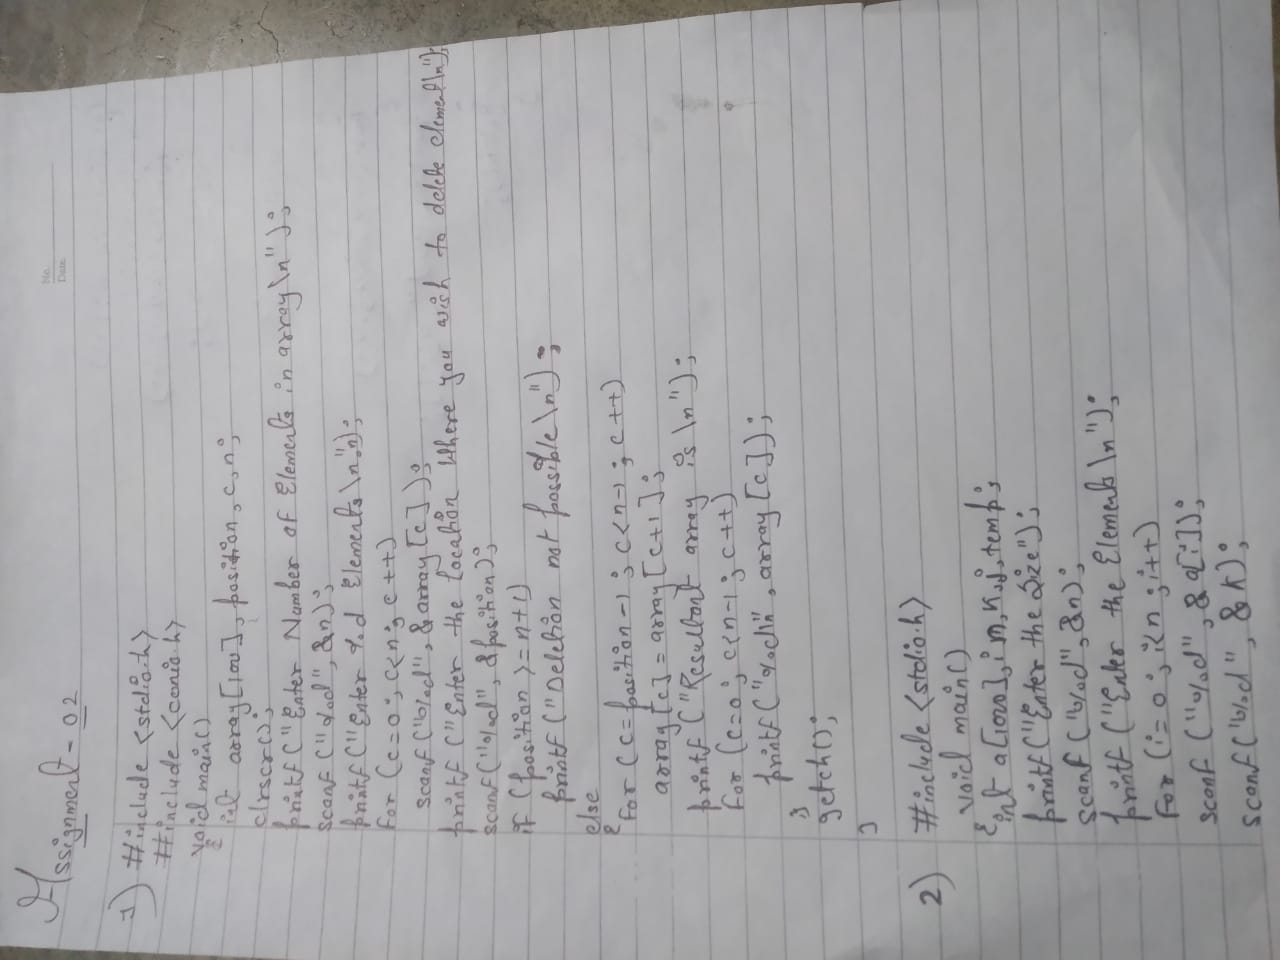 No.
Date
Assignment - 02
1) #include <stdio.h>
#include <conio.h>
void main()
{
int array[100], position, c, n;
clrscr();
printf("Enter Number of Elements in array\n");
scanf("%d", &n);
printf("Enter %d Elements\n",n);
for (c=0; c<n; c++)
scanf("%d", &array[c]);
printf("Enter the location where you wish to delete element\n");
scanf("%d", &position);
if (position >= n+1)
printf("Deletion not possible\n");
else
{
for (c=position-1; c<n-1; c++)
array[c]=array[c+1];
printf("Resultant array is\n");
for (c=0; c<n-1; c++)
printf("%d\n", array[c]);
}
getch();
}
2) #include <stdio.h>
void main()
{ int a[100], i, n, k, j, temp;
printf("Enter the size");
scanf("%d", &n);
printf("Enter the Elements\n");
for (i=0; i<n; i++)
scanf("%d", &a[i]);
scanf("%d", &k);